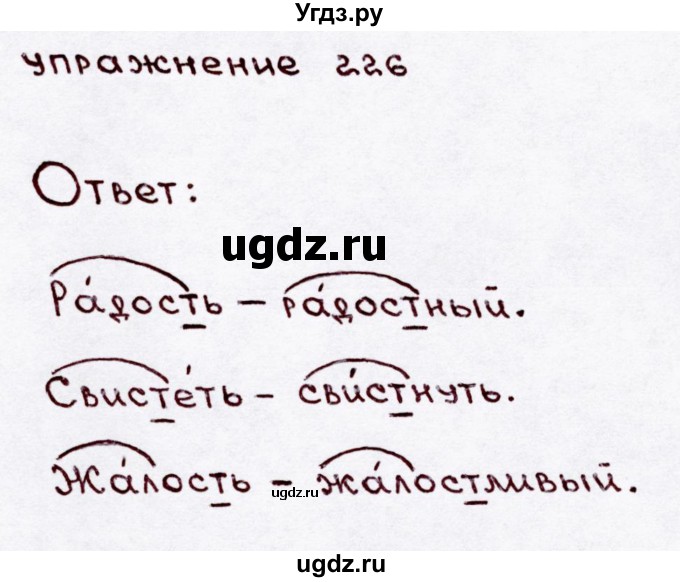 Угдз.ру
упражнение 226
Ответ:
ugdz.ru
Ра́дость – ра́достный.
Свисте́ть – сви́стнуть.
Жа́лость – жа́лостливый.
ugdz.ru
ugdz.ru